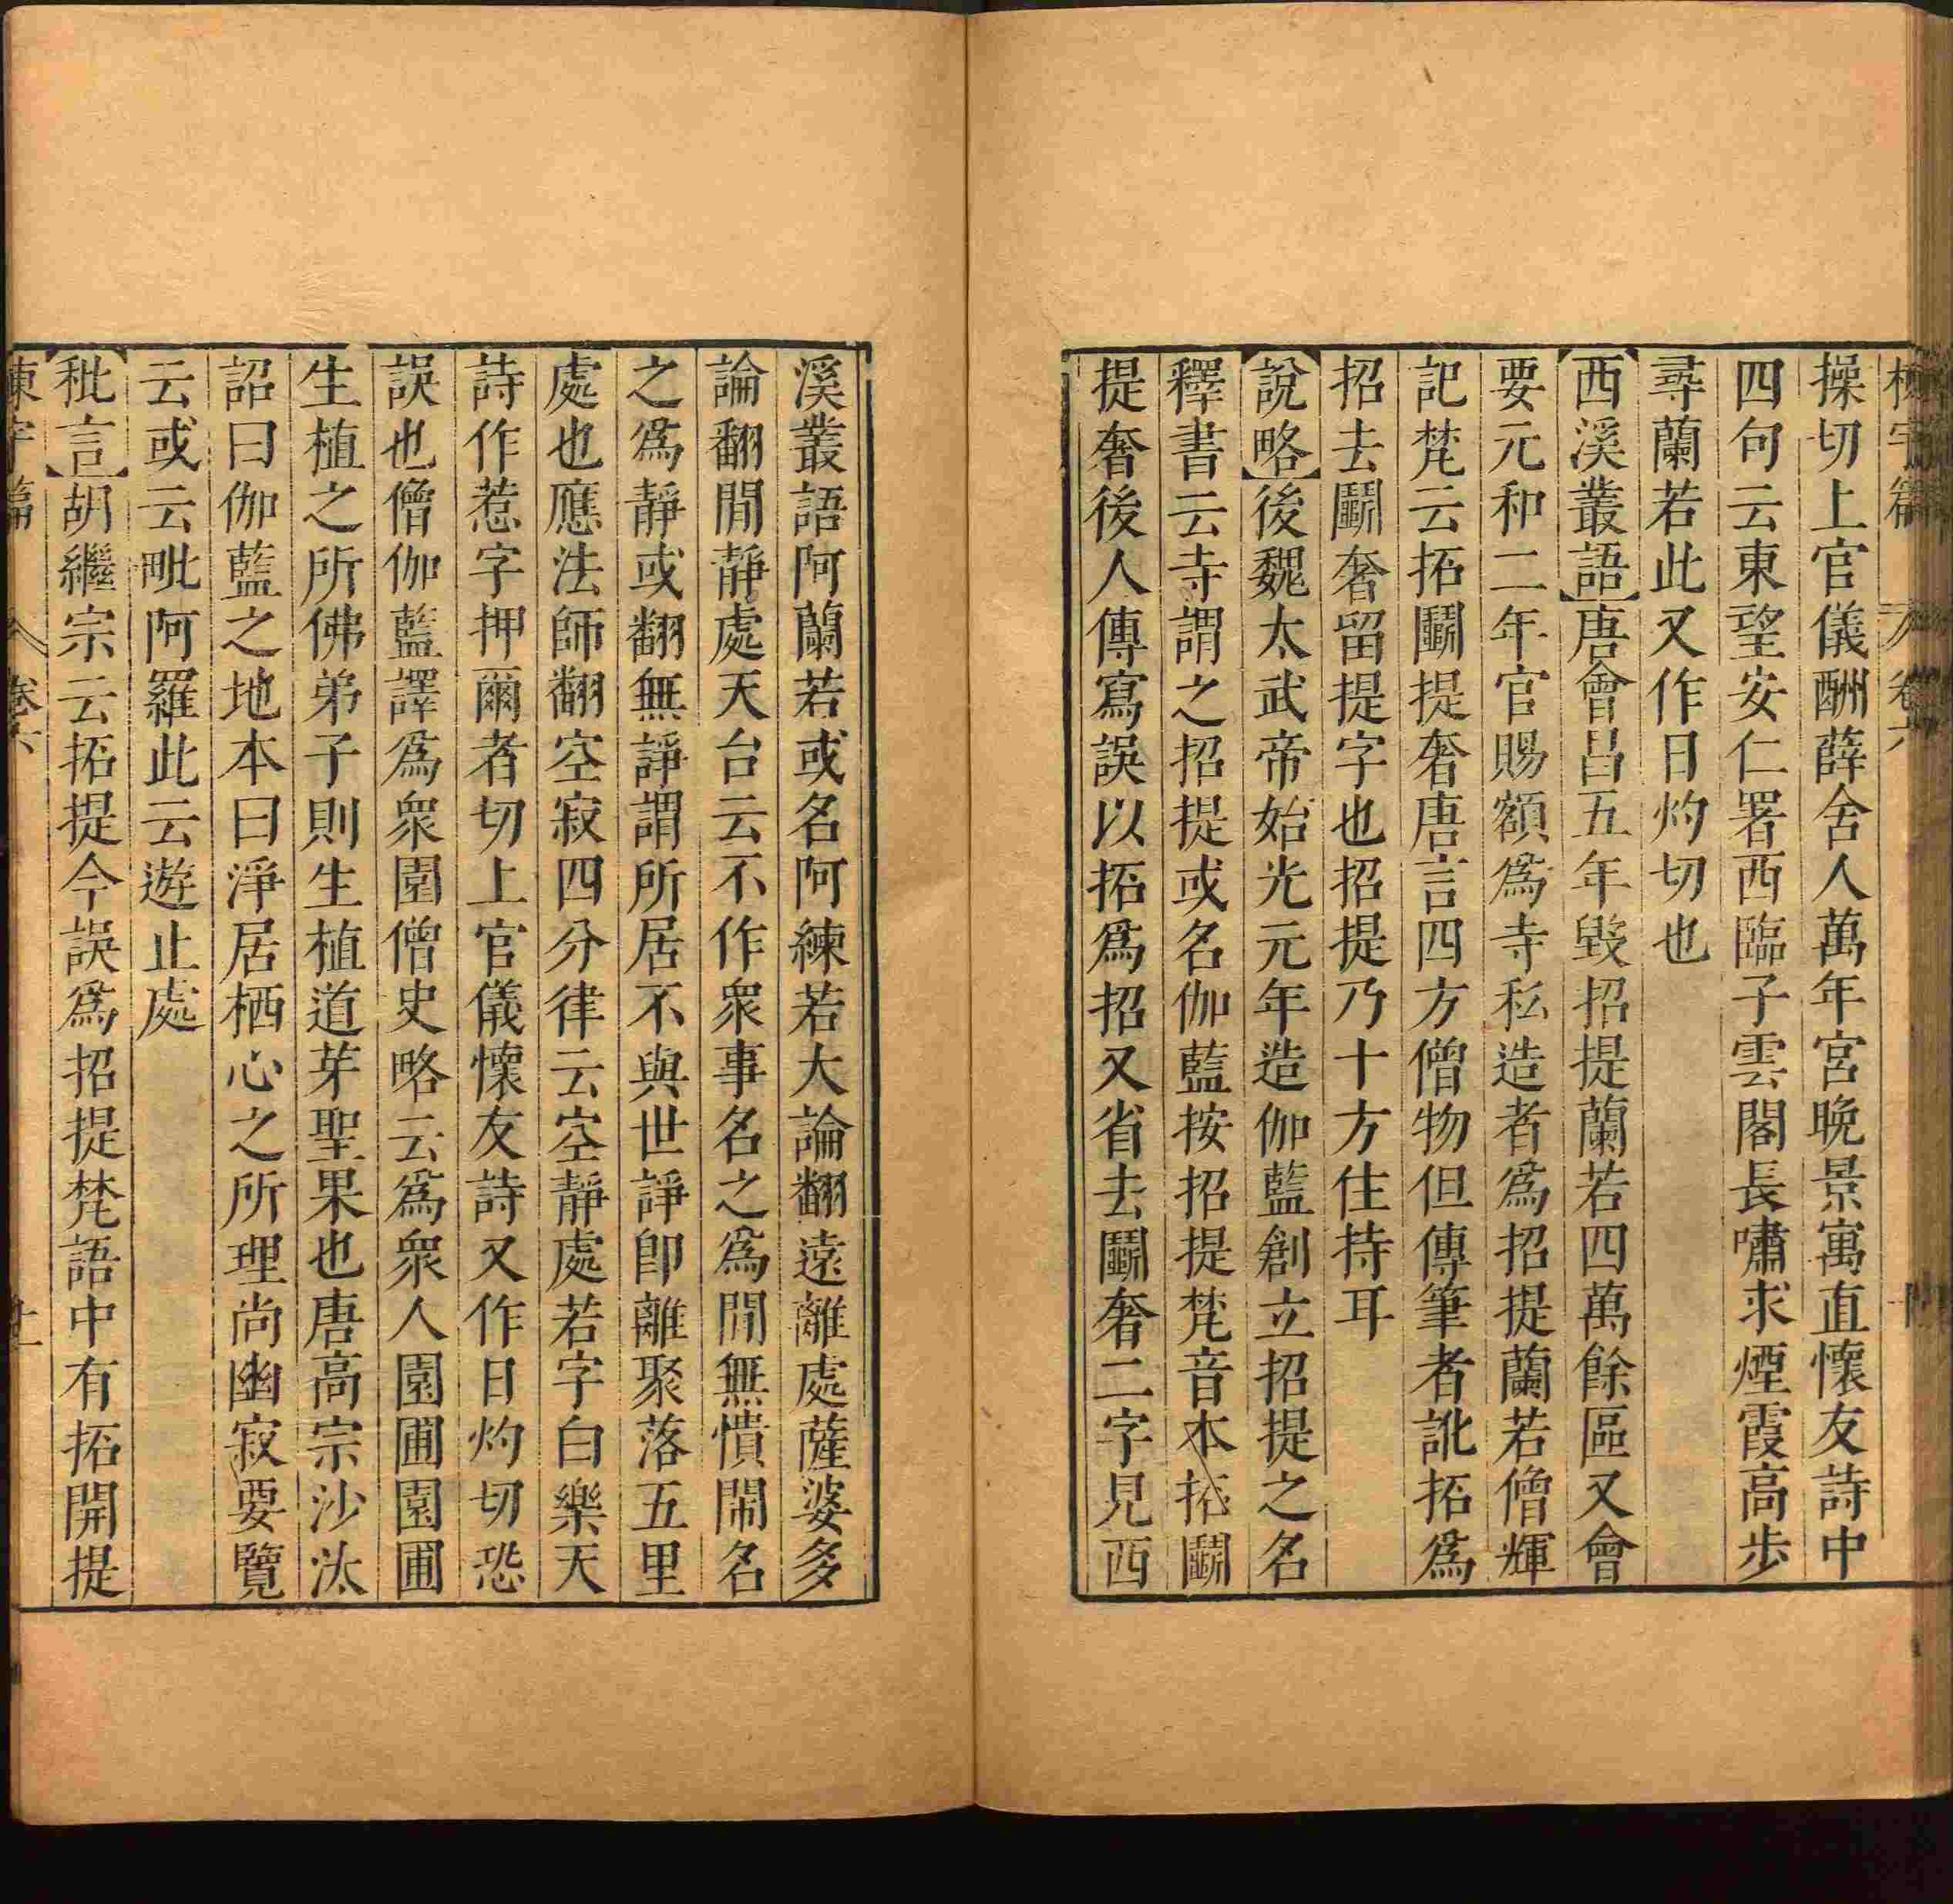 操切上官儀酬薛舍人萬年宮晚景寓直懷友詩中
四句云東望安仁署西臨子雲閣長嘯求煙霞高步
尋蘭若此又作日灼切也
西溪叢語唐會昌五年毀招提蘭若四萬餘區又會
要元和二年官賜額為寺私造者為招提蘭若僧輝
記梵云拓鬭提奢唐言四方僧物但傳筆者訛拓為
招去鬭奢留提字也招提乃十方住持耳
說略後魏太武帝始光元年造伽藍創立招提之名
釋書云寺謂之招提或名伽藍按招提梵音本拓鬭
提奢後人傳寫誤以拓為招又省去鬭奢二字見西
溪叢語阿蘭若或名阿練若大論翻遠離處薩婆多
論翻閒靜處天台云不作衆事名之為閒無憒閙名
之為靜或翻無諍謂所居不與世諍卽離聚落五里
處也應法師翻空寂四分律云空靜處若字白樂天
詩作惹字押爾者切上官儀懷友詩又作日灼切恐
誤也僧伽藍譯為衆園僧史略云為衆人園圃園圃
生植之所佛弟子則生植道芽聖果也唐高宗沙汰
詔曰伽藍之地本曰淨居栖心之所理尚幽寂要覽
云或云毗阿羅此云遊止處
秕言胡繼宗云拓提今誤為招提梵語中有拓開提